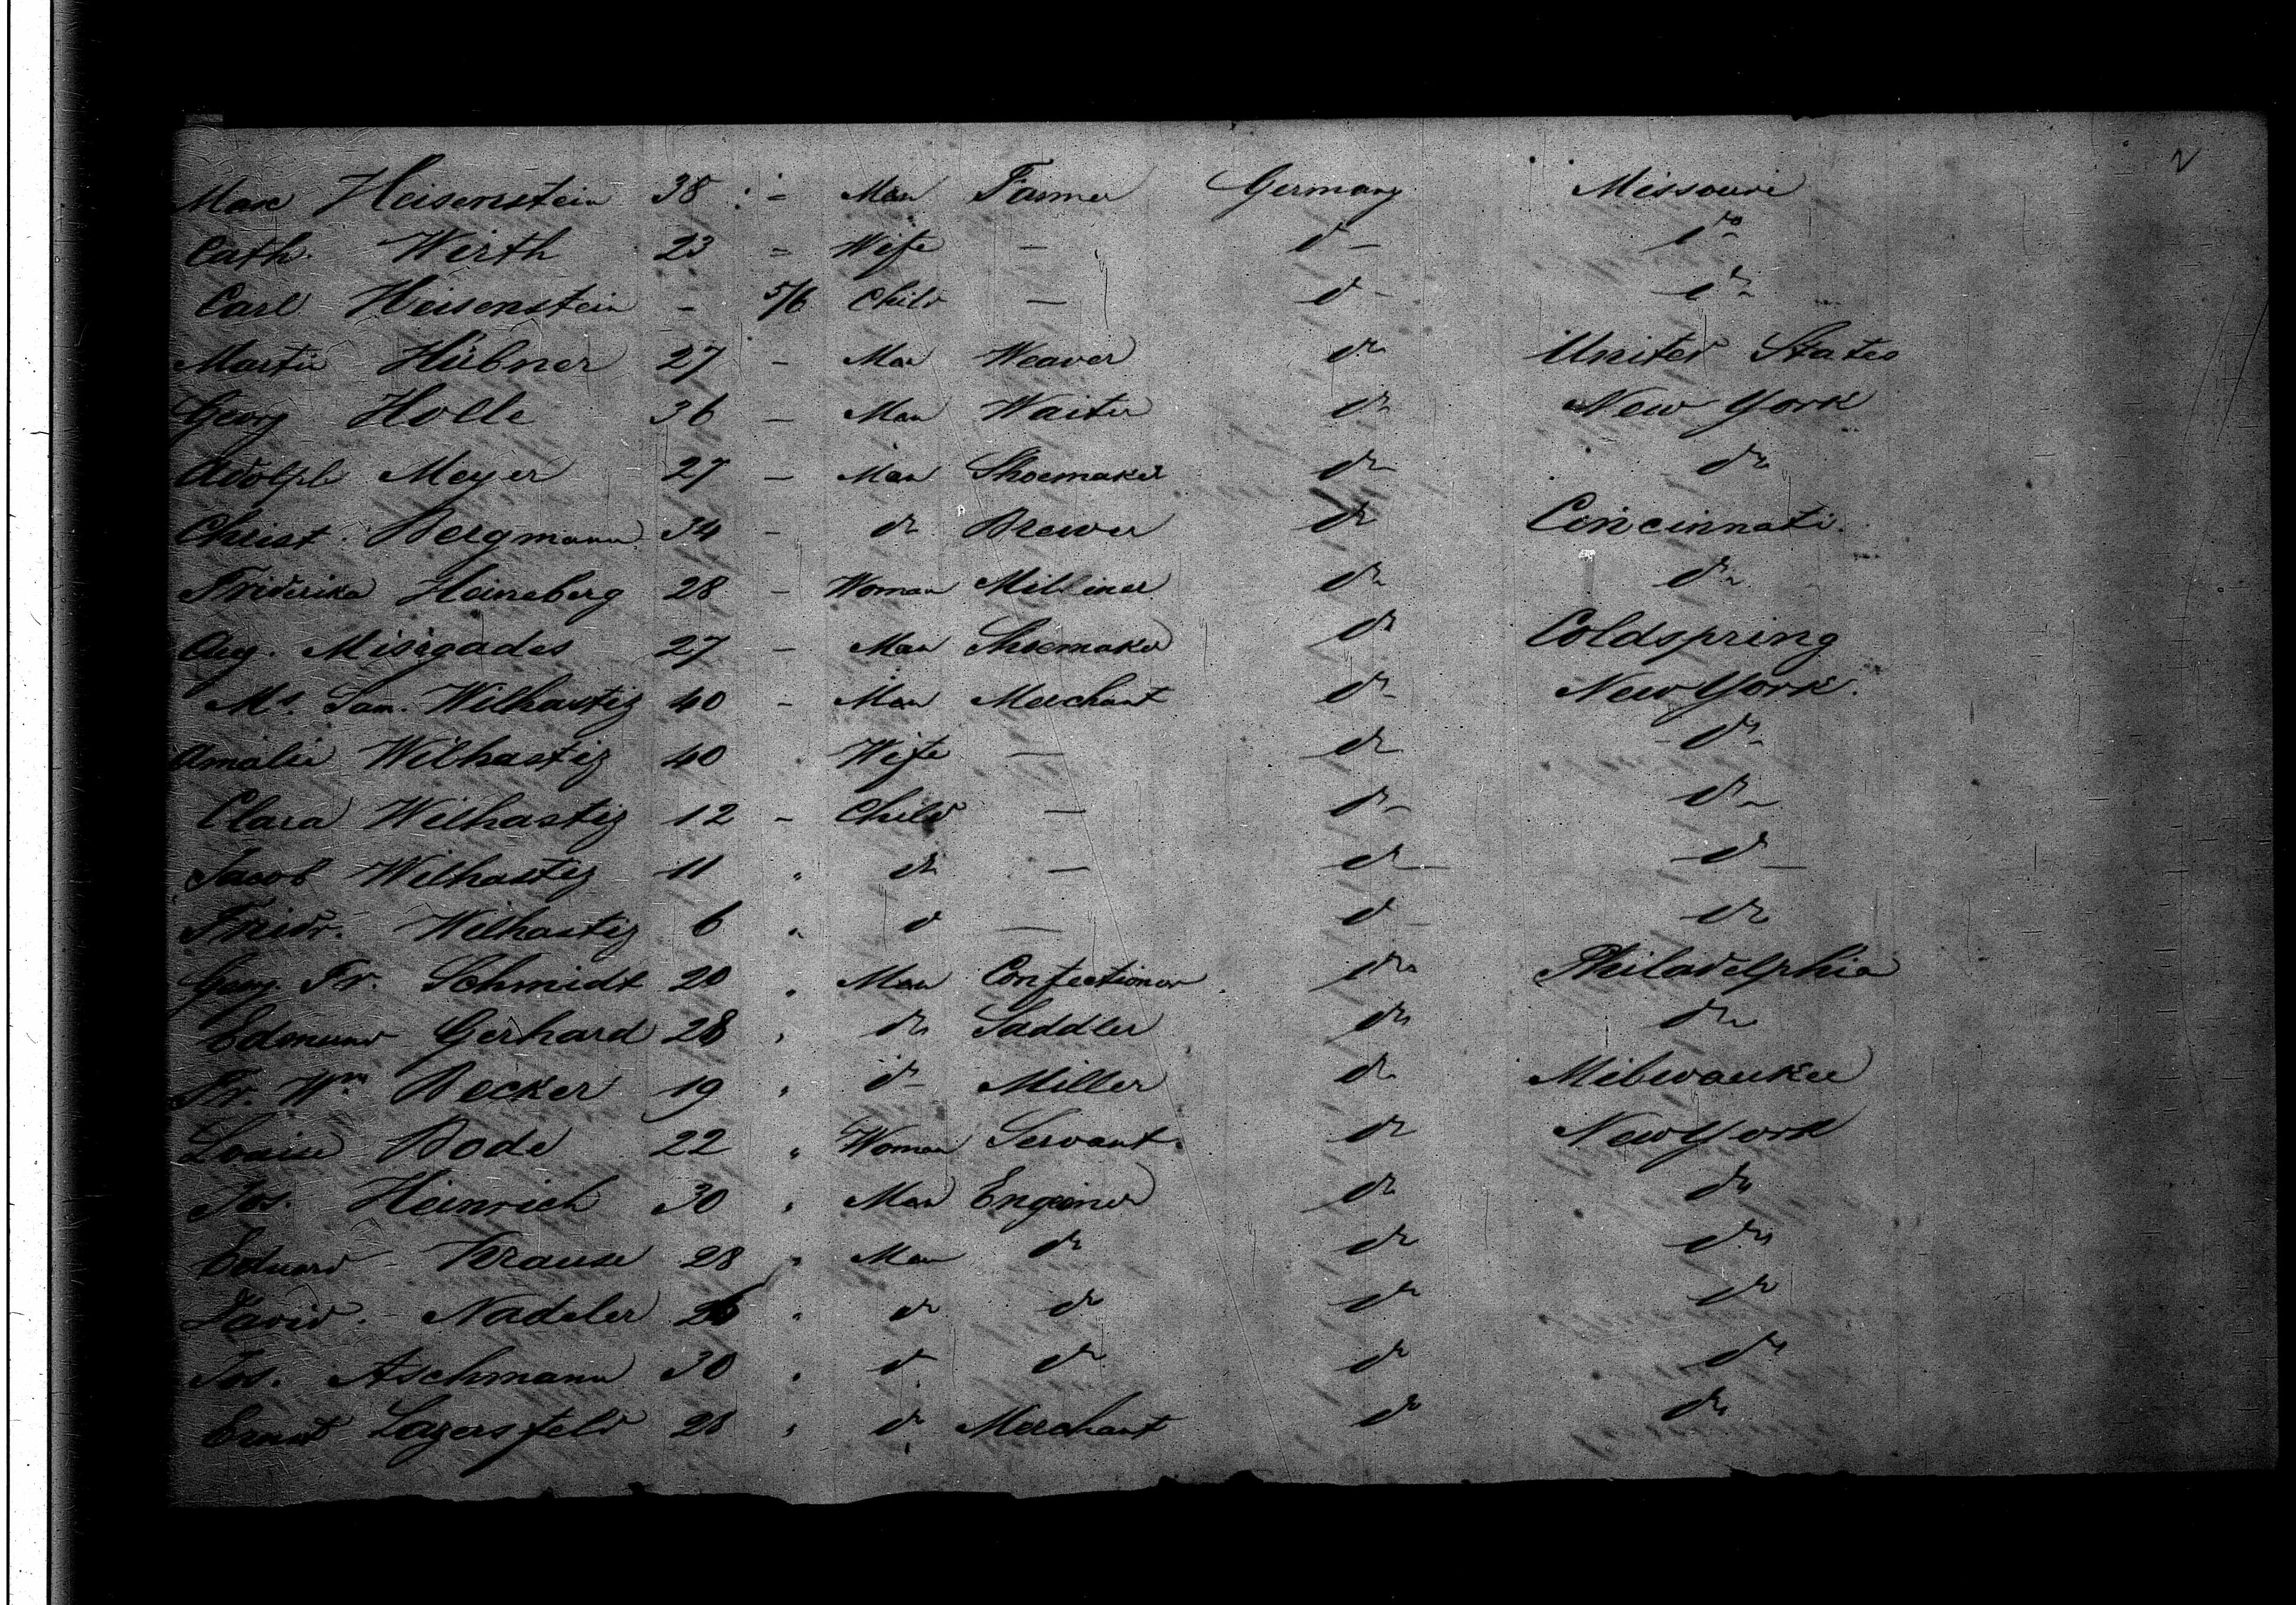 2
Max Heisenstein 38 - Man Farmer Germany Missouri
Cath. Wirth 23 - Wife - do do
Carl Heisenstein - 5/6 Child - do do
Martin Hübner 27 - Man Weaver do United States
Georg Holle 36 - Man Waiter do New York
Adolph Meyer 27 - Man Shoemaker do do
Christ. Bergmann 34 - do Brewer do Concinnati.
Friderika Heineberg 28 - Woman Milliner do do
Aug. Misigades 27 - Man Shoemaker do Coldspring
Mr. Sam. Wilhartiz 40 - Man Merchant do New York.
Amalie Wilhartiz 40 Wife - do do
Clara Wilhartiz 12 - Child - do do
Jacob Wilhartiz 11 " do - do do
Fridr. Wilhartiz 6 " do - do do
Georg Fr. Schmidt 20 " Man Confectioner do Philadelphia
Edmund Gerhard 28 " do Saddler do do
Fr. Wm Becker 19 " do Miller do Milwaukee
Louise Bode 22 " Woman Servant. do New York
Jos. Heinrich 30 " Man Engeiner do do
Eduard Krause 28 " Man do do do
David. Nadeler 26 " do do do do
Jos. Aschmann 30 " do do do do
Ernst Lagersfeld 28 " do Merchant do do